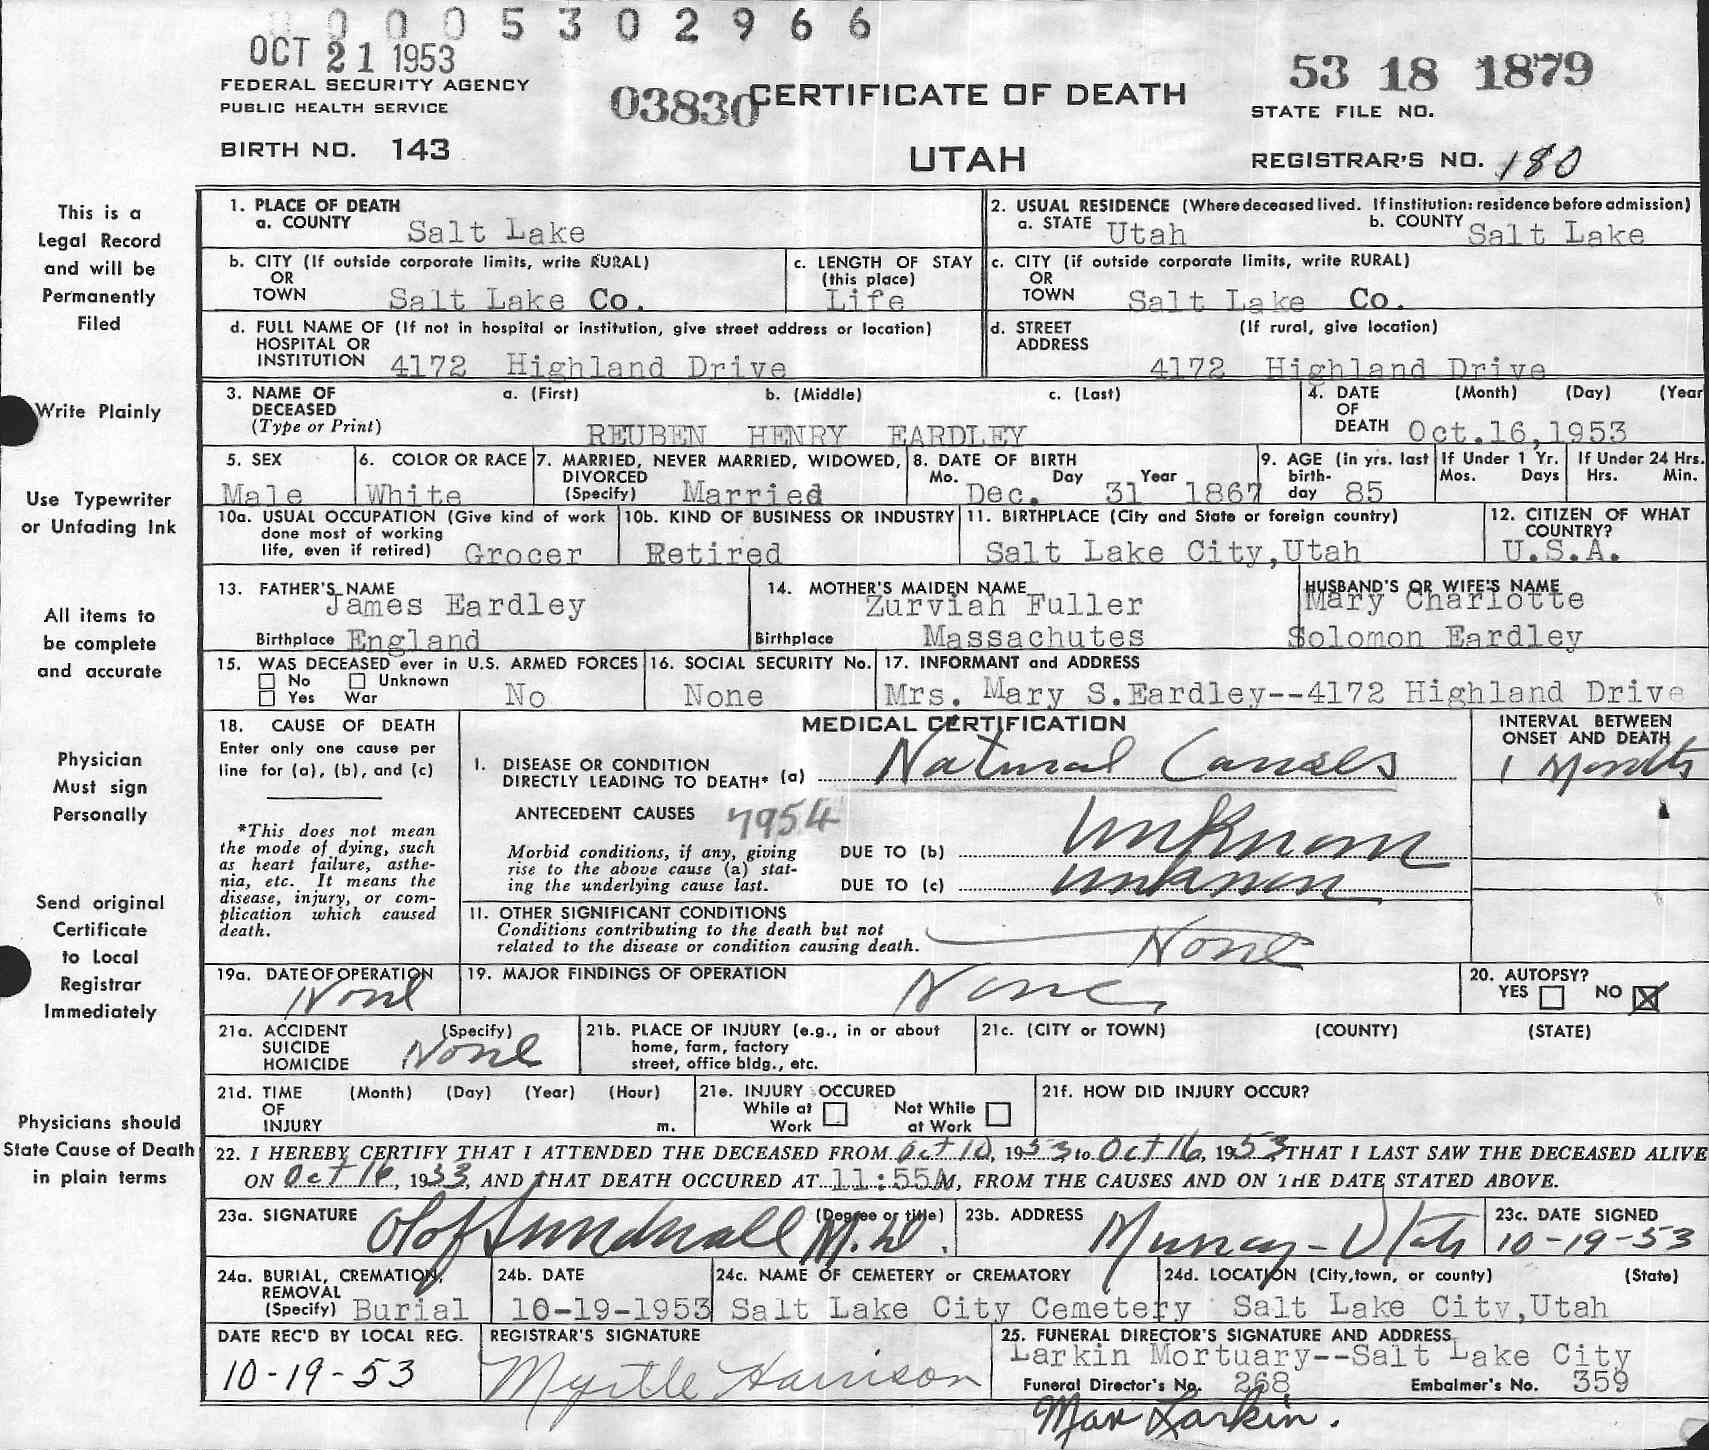 0 0 0 5 3 0 2 9 6 6
OCT 21 1953
FEDERAL SECURITY AGENCY
PUBLIC HEALTH SERVICE
BIRTH NO. 143
03830 CERTIFICATE OF DEATH
UTAH
53 18 1879
STATE FILE NO.
REGISTRAR'S NO. 180
This is a
Legal Record
and will be
Permanently
Filed
Write Plainly
Use Typewriter
or Unfading Ink
All items to
be complete
and accurate
Physician
Must sign
Personally
Send original
Certificate
to Local
Registrar
Immediately
Physicians should
State Cause of Death
in plain terms
1. PLACE OF DEATH
a. COUNTY Salt Lake
2. USUAL RESIDENCE (Where deceased lived. If institution: residence before admission)
a. STATE Utah b. COUNTY Salt Lake
b. CITY (If outside corporate limits, write RURAL)
OR
TOWN Salt Lake Co.
c. LENGTH OF STAY
(this place)
Life
c. CITY (if outside corporate limits, write RURAL)
OR
TOWN Salt Lake Co.
d. FULL NAME OF (If not in hospital or institution, give street address or location)
HOSPITAL OR
INSTITUTION 4172 Highland Drive
d. STREET (If rural, give location)
ADDRESS
4172 Highland Drive
3. NAME OF a. (First) b. (Middle) c. (Last)
DECEASED
(Type or Print) REUBEN HENRY EARDLEY
4. DATE (Month) (Day) (Year
OF
DEATH Oct.16,1953
5. SEX
Male
6. COLOR OR RACE
White
7. MARRIED, NEVER MARRIED, WIDOWED,
DIVORCED
(Specify) Married
8. DATE OF BIRTH
Mo. Day Year
Dec. 31 1867
9. AGE (in yrs. last
birth-
day 85
If Under 1 Yr.
Mos. Days
If Under 24 Hrs.
Hrs. Min.
10a. USUAL OCCUPATION (Give kind of work
done most of working
life, even if retired) Grocer
10b. KIND OF BUSINESS OR INDUSTRY
Retired
11. BIRTHPLACE (City and State or foreign country)
Salt Lake City,Utah
12. CITIZEN OF WHAT
COUNTRY?
U.S.A.
13. FATHER'S NAME
James Eardley
Birthplace England
14. MOTHER'S MAIDEN NAME
Zurviah Fuller
Birthplace Massachutes
HUSBAND'S OR WIFE'S NAME
Mary Charlotte
Solomon Eardley
15. WAS DECEASED ever in U.S. ARMED FORCES
No Unknown
Yes War No
16. SOCIAL SECURITY No.
None
17. INFORMANT and ADDRESS
Mrs. Mary S.Eardley--4172 Highland Drive
18. CAUSE OF DEATH
Enter only one cause per
line for (a), (b), and (c)
*This does not mean
the mode of dying, such
as heart failure, asthe-
nia, etc. It means the
disease, injury, or com-
plication which caused
death.
MEDICAL CERTIFICATION
I. DISEASE OR CONDITION
DIRECTLY LEADING TO DEATH* (a) Natural Causes
ANTECEDENT CAUSES 7954
Morbid conditions, if any, giving
rise to the above cause (a) stat-
ing the underlying cause last.
DUE TO (b) Unknown
DUE TO (c) unknown
INTERVAL BETWEEN
ONSET AND DEATH
1 Months
II. OTHER SIGNIFICANT CONDITIONS
Conditions contributing to the death but not
related to the disease or condition causing death. None
19a. DATE OF OPERATION
None
19. MAJOR FINDINGS OF OPERATION
None
20. AUTOPSY?
YES NO X
21a. ACCIDENT (Specify)
SUICIDE
HOMICIDE None
21b. PLACE OF INJURY (e.g., in or about
home, farm, factory
street, office bldg., etc.
21c. (CITY or TOWN) (COUNTY) (STATE)
21d. TIME (Month) (Day) (Year) (Hour)
OF
INJURY m.
21e. INJURY OCCURED
While at Not While
Work at Work
21f. HOW DID INJURY OCCUR?
22. I HEREBY CERTIFY THAT I ATTENDED THE DECEASED FROM Oct 10, 1953 to Oct 16, 1953 THAT I LAST SAW THE DECEASED ALIVE
ON Oct 16, 1953, AND THAT DEATH OCCURED AT 11:55AM, FROM THE CAUSES AND ON THE DATE STATED ABOVE.
23a. SIGNATURE (Degree or title)
Olof Sundwall M.D.
23b. ADDRESS
Murray-Utah
23c. DATE SIGNED
10-19-53
24a. BURIAL, CREMATION,
REMOVAL
(Specify) Burial
24b. DATE
10-19-1953
24c. NAME OF CEMETERY or CREMATORY
Salt Lake City Cemetery
24d. LOCATION (City,town, or county) (State)
Salt Lake City,Utah
DATE REC'D BY LOCAL REG.
10-19-53
REGISTRAR'S SIGNATURE
Myrtle Harrison
25. FUNERAL DIRECTOR'S SIGNATURE AND ADDRESS
Larkin Mortuary--Salt Lake City
Funeral Director's No. 268 Embalmer's No. 359
Max Larkin.